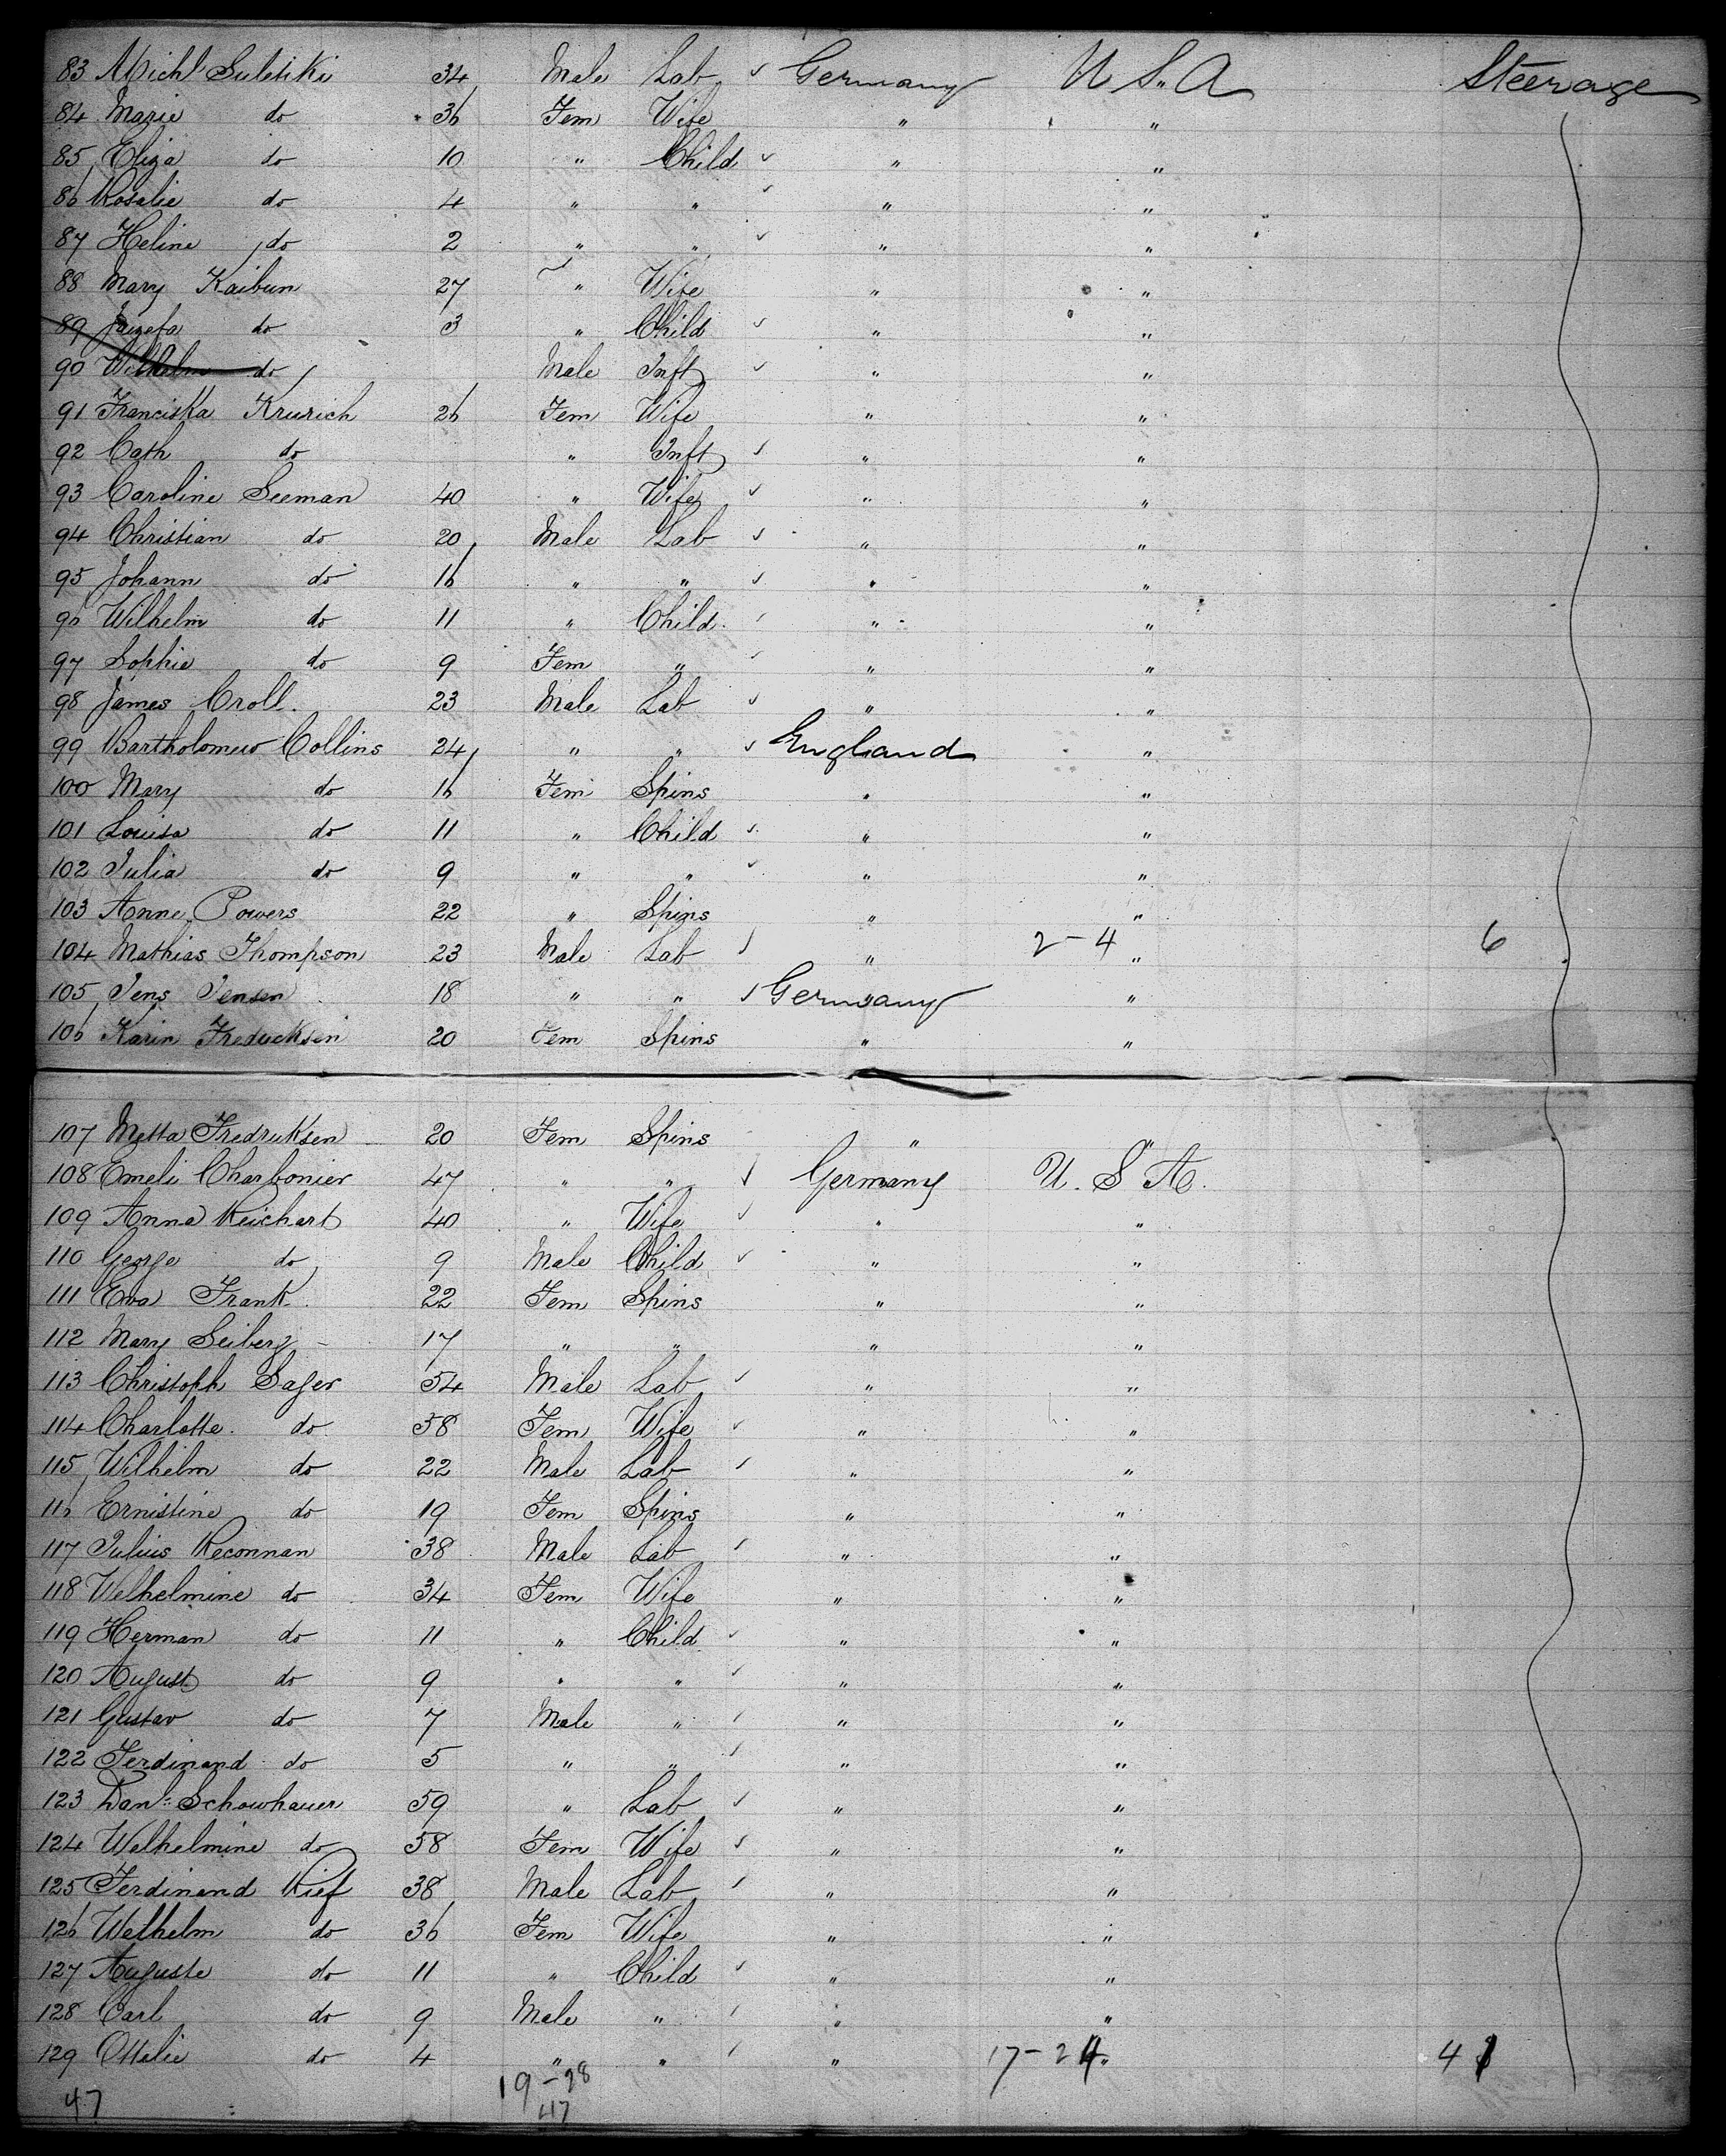 83 Michl Suletiki 34 Male Lab ✓ Germany U S. A Steerage
84 Marie do 36 Fem Wife " "
85 Eliza do 10 " Child ✓ " "
86 Rosalie do 4 " " ✓ " "
87 Heline do 2 " " ✓ " "
88 Mary Kaibun 27 " Wife " "
89 Jozefa do 3 " Child ✓ " "
90 Wilhelm do Male Inft ✓ " "
91 Franciska Krurich 26 Fem Wife " "
92 Cath do " Inft ✓ " "
93 Caroline Seeman 40 " Wife ✓ " "
94 Christian do 20 Male Lab ✓ " "
95 Johann do 16 " " ✓ " "
96 Wilhelm do 11 " Child ✓ " "
97 Sophie do 9 Fem " ✓ " "
98 James Croll. 23 Male Lab ✓ " "
99 Bartholomew Collins 24 " " ✓ England "
100 Mary do 16 Fem Spins " "
101 Louisa do 11 " Child ✓ " "
102 Julia do 9 " " ✓ " "
103 Anne Powers 22 " Spins " "
104 Mathias Thompson 23 Male Lab ✓ " 2-4 " 6
105 Jens Jensen 18 " " ✓ Germany "
106 Karin Fredricksen 20 Fem Spins " "
107 Metta Fredricksen 20 Fem Spins " "
108 Emeli Charbonier 47 " " ✓ Germany U. S A.
109 Anna Reichart 40 " Wife ✓ " "
110 George do 9 Male Child ✓ " "
111 Eva Frank. 22 Fem Spins " "
112 Mary Seiberg 17 " " " "
113 Christoph Sager 54 Male Lab ✓ " "
114 Charlotte do 58 Fem Wife ✓ " "
115 Wilhelm do 22 Male Lab ✓ " "
116 Ernistine do 19 Fem Spins " "
117 Julius Reconnan 38 Male Lab ✓ " "
118 Welhelmine do 34 Fem Wife " "
119 Herman do 11 " Child ✓ " "
120 August do 9 " " ✓ " "
121 Gustav do 7 Male " ✓ " "
122 Ferdinand do 5 " " ✓ " "
123 Danl: Schowhauer 59 " Lab ✓ " "
124 Welhelmine do 58 Fem Wife ✓ " "
125 Ferdinand Kief 38 Male Lab ✓ " "
126 Welhelm do 36 Fem Wife " "
127 Auguste do 11 " Child ✓ " "
128 Carl do 9 Male " ✓ " "
129 Ottalie do 4 " " ✓ " 17-24 " 41
47 19-28
47